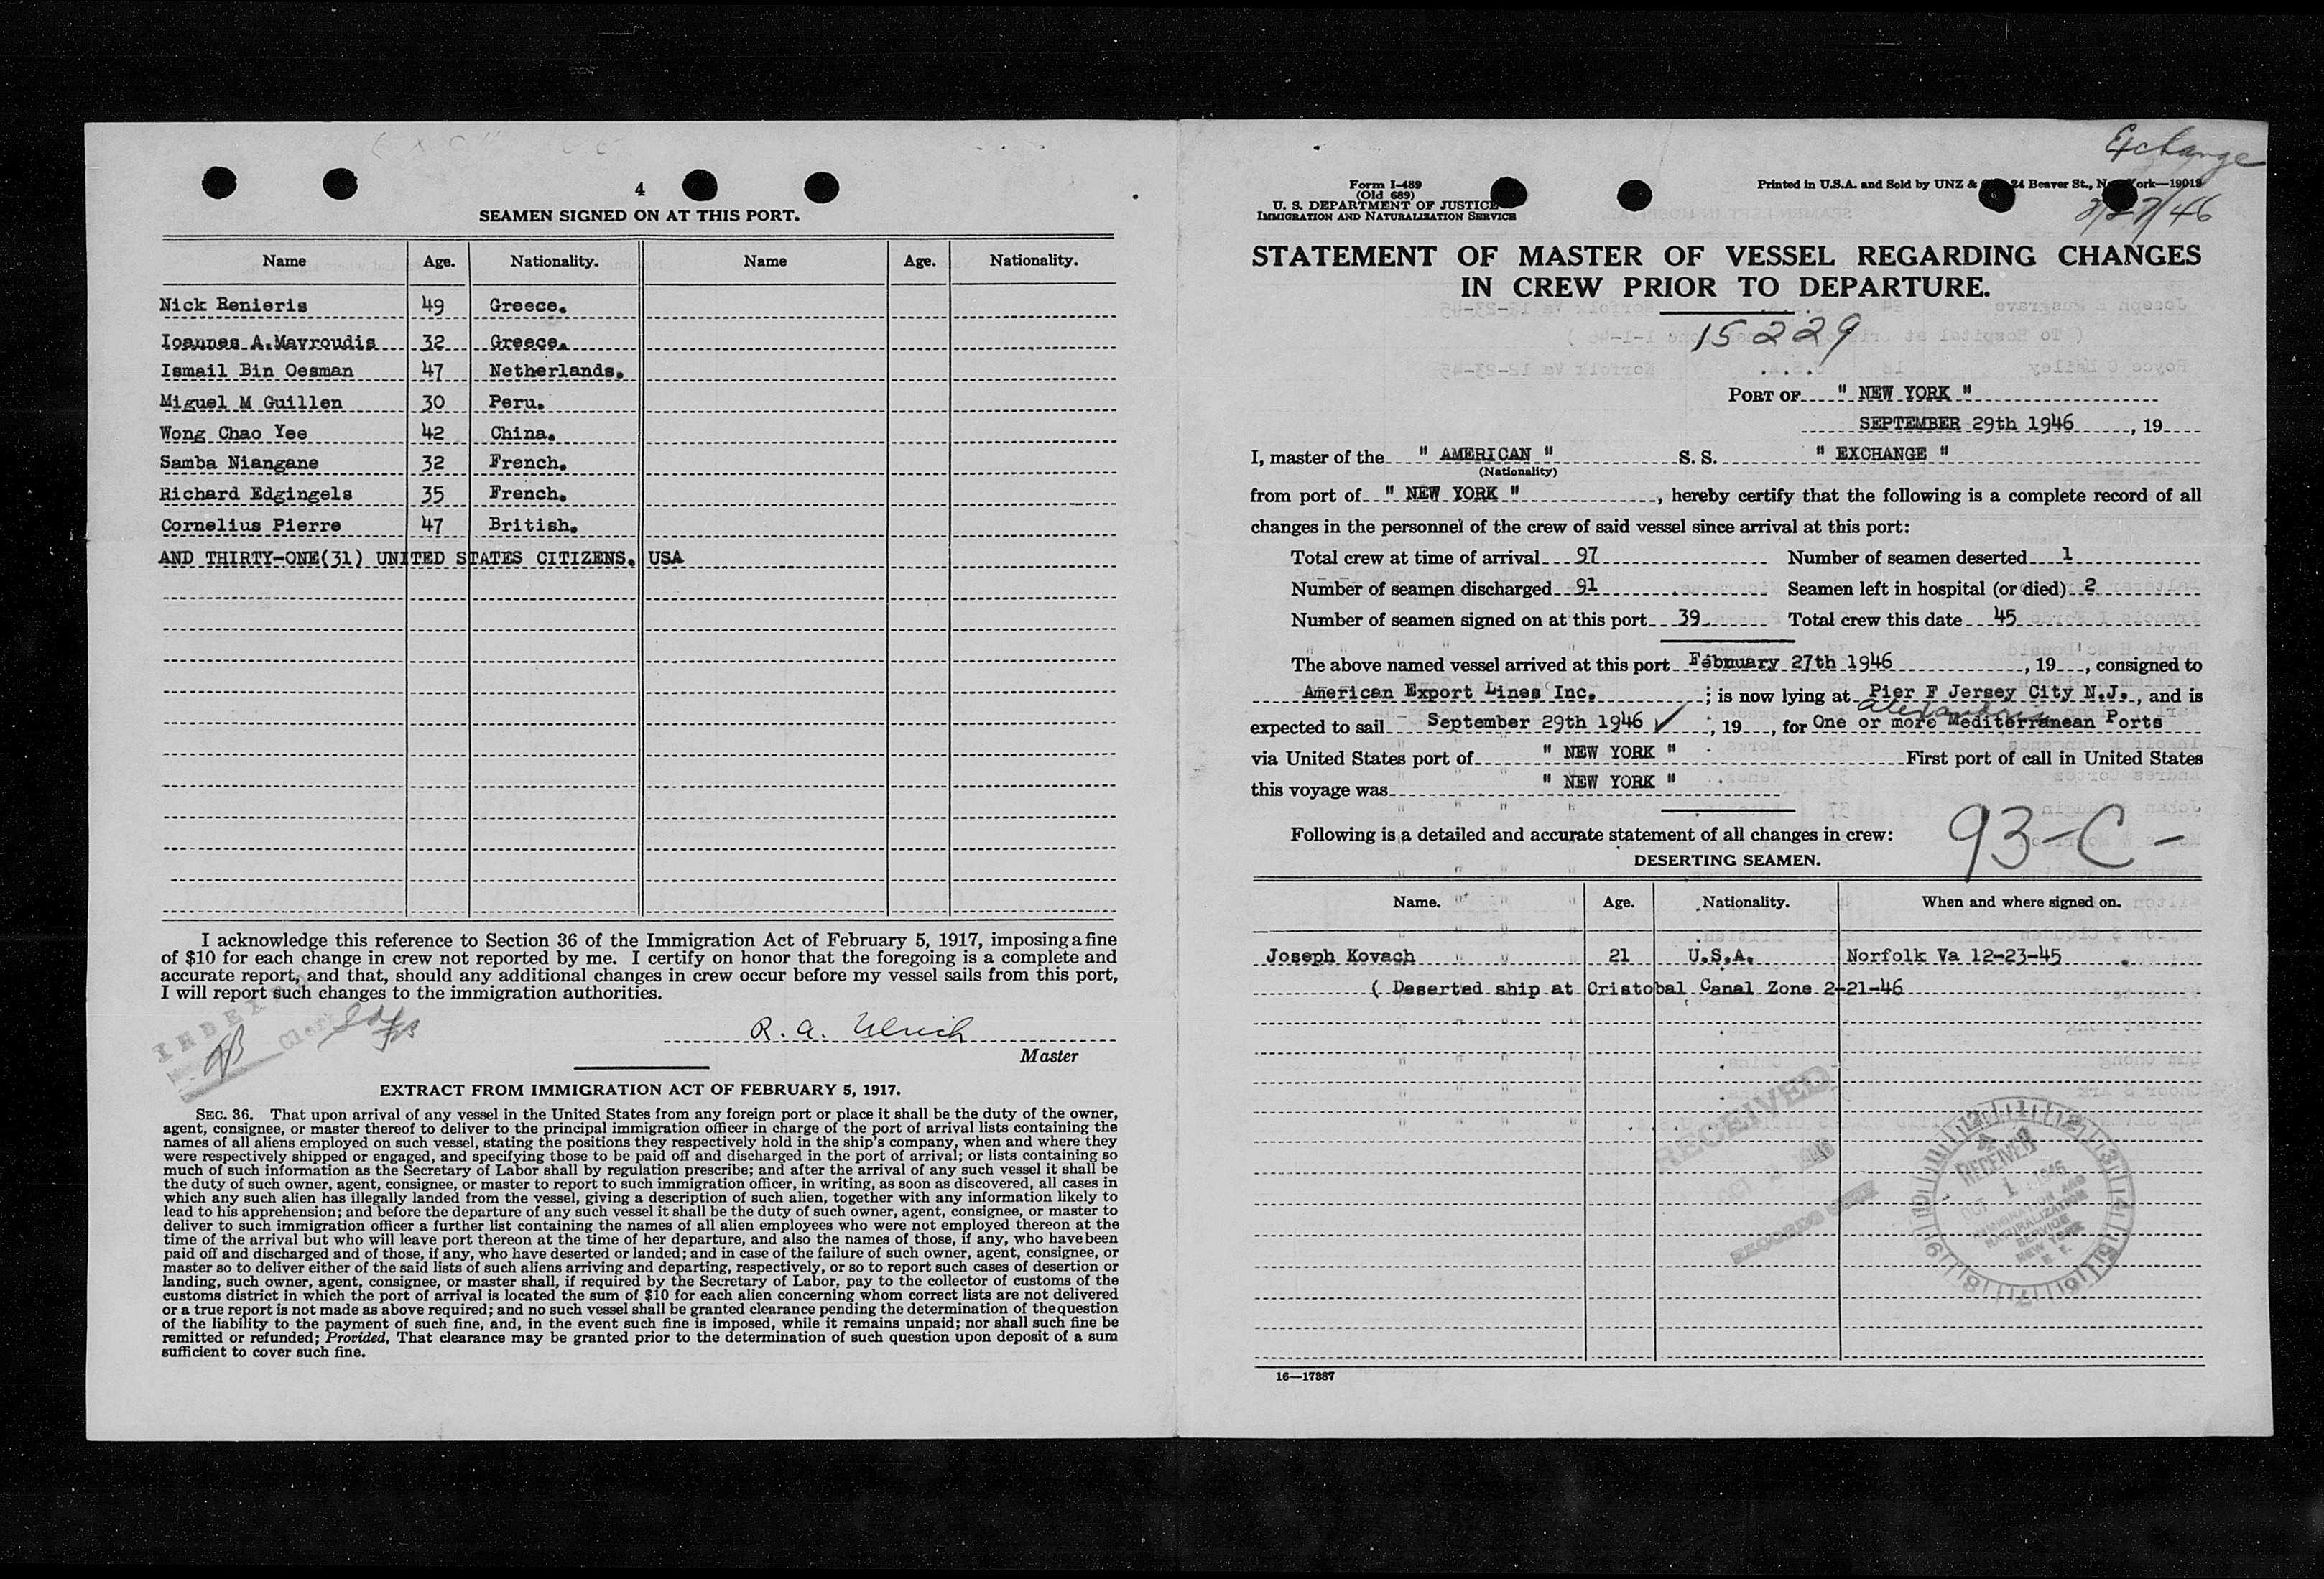 4
SEAMEN SIGNED ON AT THIS PORT.
Name Age. Nationality. Name Age. Nationality.
Nick Renieris 49 Greece.
Ioannes A.Mavroudis 32 Greece.
Ismail Bin Oesman 47 Netherlands.
Miguel M Guillen 30 Peru.
Wong Chao Yee 42 China.
Samba Niangane 32 French.
Richard Edgingels 35 French.
Cornelius Pierre 47 British.
AND THIRTY-ONE(31) UNITED STATES CITIZENS. USA
I acknowledge this reference to Section 36 of the Immigration Act of February 5, 1917, imposing a fine
of $10 for each change in crew not reported by me. I certify on honor that the foregoing is a complete and
accurate report, and that, should any additional changes in crew occur before my vessel sails from this port,
I will report such changes to the immigration authorities.
R. A. Ulrich
Master
EXTRACT FROM IMMIGRATION ACT OF FEBRUARY 5, 1917.
SEC. 36. That upon arrival of any vessel in the United States from any foreign port or place it shall be the duty of the owner,
agent, consignee, or master thereof to deliver to the principal immigration officer in charge of the port of arrival lists containing the
names of all aliens employed on such vessel, stating the positions they respectively hold in the ship's company, when and where they
were respectively shipped or engaged, and specifying those to be paid off and discharged in the port of arrival; or lists containing so
much of such information as the Secretary of Labor shall by regulation prescribe; and after the arrival of any such vessel it shall be
the duty of such owner, agent, consignee, or master to report to such immigration officer, in writing, as soon as discovered, all cases in
which any such alien has illegally landed from the vessel, giving a description of such alien, together with any information likely to
lead to his apprehension; and before the departure of any such vessel it shall be the duty of such owner, agent, consignee, or master to
deliver to such immigration officer a further list containing the names of all alien employees who were not employed thereon at the
time of the arrival but who will leave port thereon at the time of her departure, and also the names of those, if any, who have been
paid off and discharged and of those, if any, who have deserted or landed; and in case of the failure of such owner, agent, consignee, or
master so to deliver either of the said lists of such aliens arriving and departing, respectively, or so to report such cases of desertion or
landing, such owner, agent, consignee, or master shall, if required by the Secretary of Labor, pay to the collector of customs of the
customs district in which the port of arrival is located the sum of $10 for each alien concerning whom correct lists are not delivered
or a true report is not made as above required; and no such vessel shall be granted clearance pending the determination of the question
of the liability to the payment of such fine, and, in the event such fine is imposed, while it remains unpaid; nor shall such fine be
remitted or refunded; Provided, That clearance may be granted prior to the determination of such question upon deposit of a sum
sufficient to cover such fine.
Exchange
2/27/46
Form I-489
(Old 689)
U. S. DEPARTMENT OF JUSTICE
IMMIGRATION AND NATURALIZATION SERVICE
Printed in U.S.A. and Sold by UNZ & 24 Beaver St., New York—19013
STATEMENT OF MASTER OF VESSEL REGARDING CHANGES
IN CREW PRIOR TO DEPARTURE.
15229
PORT OF " NEW YORK "
SEPTEMBER 29th 1946, 19
I, master of the " AMERICAN " S. S. " EXCHANGE "
(Nationality)
from port of " NEW YORK ", hereby certify that the following is a complete record of all
changes in the personnel of the crew of said vessel since arrival at this port:
Total crew at time of arrival 97 Number of seamen deserted 1
Number of seamen discharged 91 Seamen left in hospital (or died) 2
Number of seamen signed on at this port 39 Total crew this date 45
The above named vessel arrived at this port February 27th 1946, 19, consigned to
American Export Lines Inc. ; is now lying at Pier F Jersey City N.J., and is
Alexandria
expected to sail September 29th 1946 ✓, 19, for One or more Mediterranean Ports
via United States port of " NEW YORK " First port of call in United States
this voyage was " NEW YORK "
Following is a detailed and accurate statement of all changes in crew:
93-C-
DESERTING SEAMEN.
Name. Age. Nationality. When and where signed on.
Joseph Kovach 21 U.S.A. Norfolk Va 12-23-45
( Deserted ship at Cristobal Canal Zone 2-21-46
RECEIVED
RECEIVED
OCT 1 1946
IMMIGRATION AND
NATURALIZATION
SERVICE
NEW YORK
N. Y.
16—17387